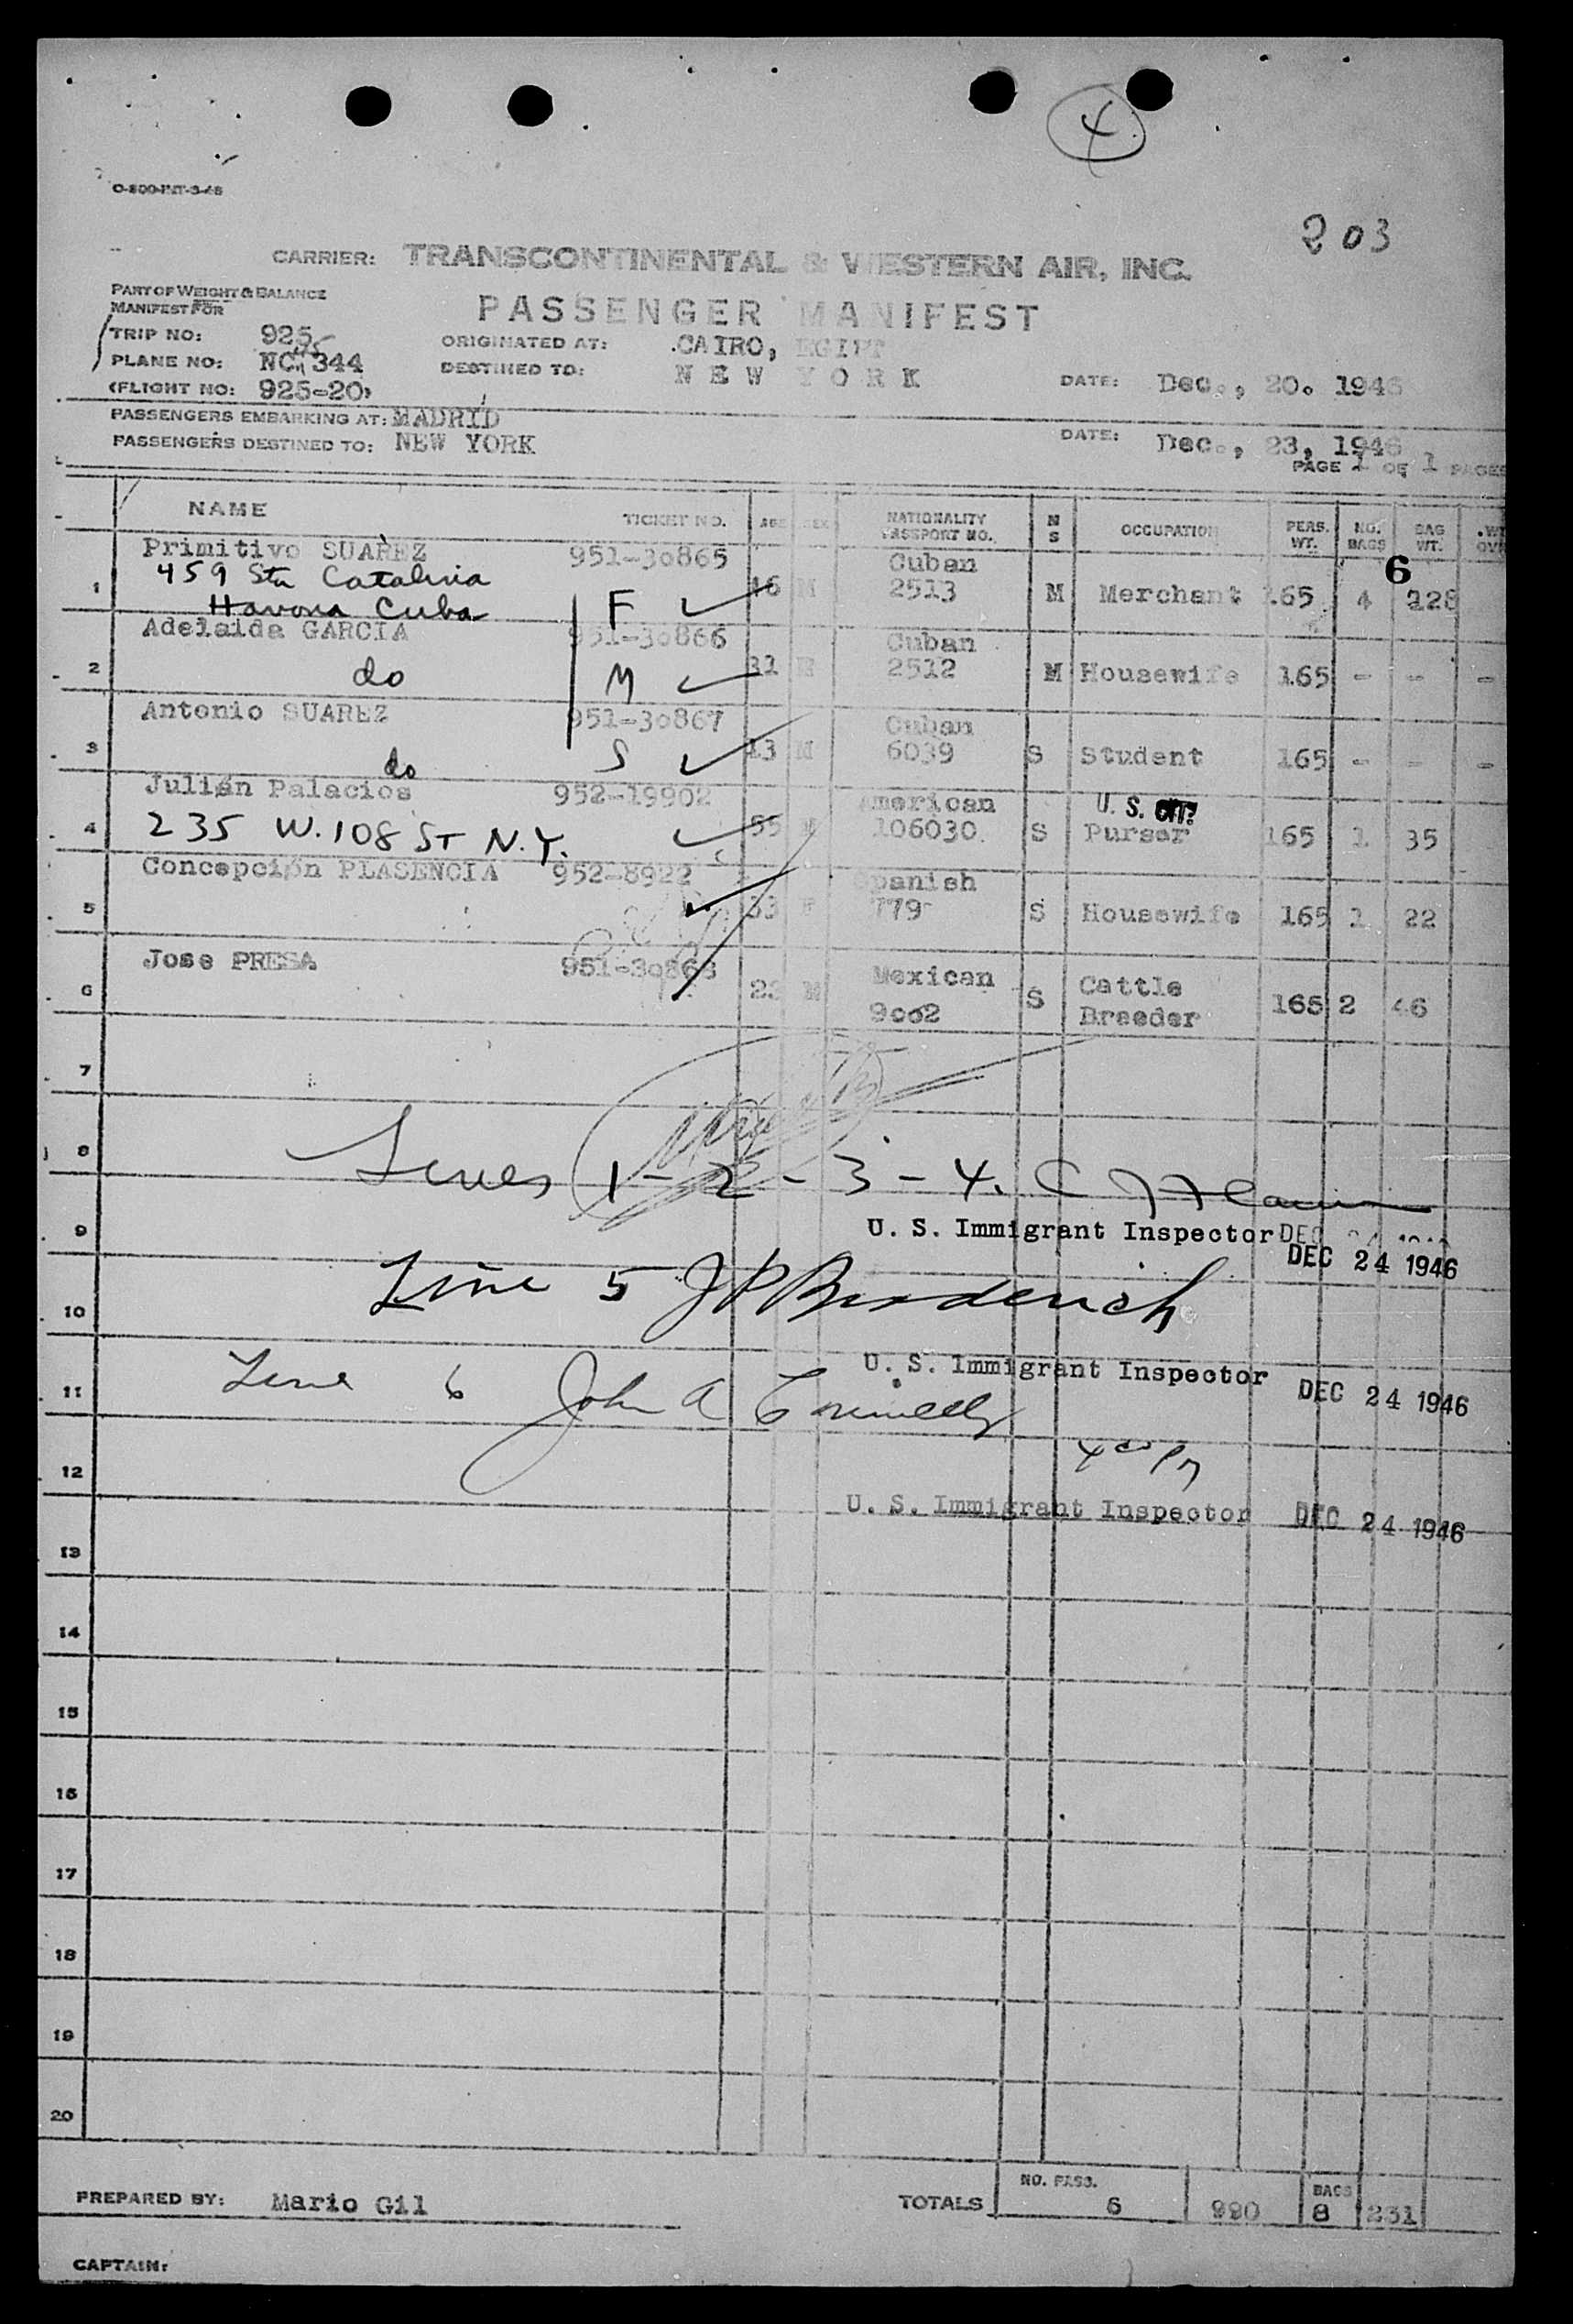 4
203
CARRIER: TRANSCONTINENTAL & WESTERN AIR, INC.
PART OF WEIGHT & BALANCE
MANIFEST FOR
PASSENGER MANIFEST
TRIP NO: 925
ORIGINATED AT: CAIRO, EGIPT
PLANE NO: NC 344
DESTINED TO: NEW YORK
FLIGHT NO: 925-20
DATE: Dec., 20. 1946
PASSENGERS EMBARKING AT: MADRID
PASSENGERS DESTINED TO: NEW YORK
DATE: Dec., 23, 1946
PAGE 1 OF 1 PAGES
NAME TICKET NO. AGE SEX NATIONALITY PASSPORT NO. M S OCCUPATION PERS. WT. NO. BAGS BAG WT.
6
1 Primitivo SUAREZ 951-30865 46 M Cuban 2513 M Merchant 165 4 128
459 Sta Catalina
Havana Cuba F
2 Adelaida GARCIA 951-30866 31 Cuban 2512 M Housewife 165 - - -
do M
3 Antonio SUAREZ 951-30867 13 M Cuban 6039 S Student 165 - - -
do S
4 Julián Palacios 952-19902 55 M American 106030 S Purser 165 1 35
235 W. 108 ST N.Y. U. S. CIT.
5 Concepción PLASENCIA 952-8922 33 F Spanish 779 S Housewife 165 1 22
6 Jose PRESA 951-30868 23 M Mexican 9002 S Cattle Breeder 165 2 46
7
8
Lines 1-2-3-4.
9
U. S. Immigrant Inspector DEC 24 1946
DEC 24 1946
Line 5 JP Broderick
10
U. S. Immigrant Inspector DEC 24 1946
11
Line 6 John A Connelly
12
U. S. Immigrant Inspector DEC 24 1946
13
14
15
16
17
18
19
20
PREPARED BY: Mario Gil
TOTALS NO. PASS. 6 990 BAGS 8 231
CAPTAIN: